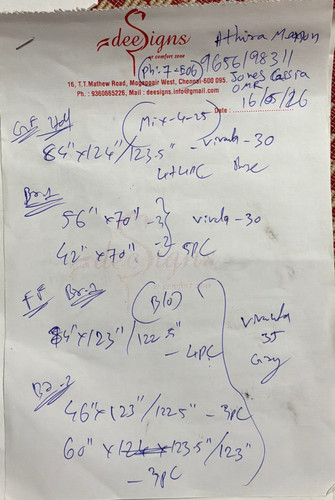 deeSigns
at comfort zone
Athira Menon
(Ph:7-E06) 9656198311
16, T.T. Mathew Road, Mogappair West, Chennai-600 095.
Jones Cassia
Ph. : 9360665226, Mail : deesigns.info@gmail.com
OMR
Date : 16/05/26
(Mix-4-25)
84" x 124"/123.5" - Vivula - 30
4+4PC
Br.1
56" x 70" - 3 Vivula - 30
42" x 70" - 2 5PC
FF Br.2 (B/O)
84" x 123"/122.5"
- 4PC
35
Gray
Br.3
46" x 123"/122.5" - 3PC
60" x 123.5"/123"
- 3PC